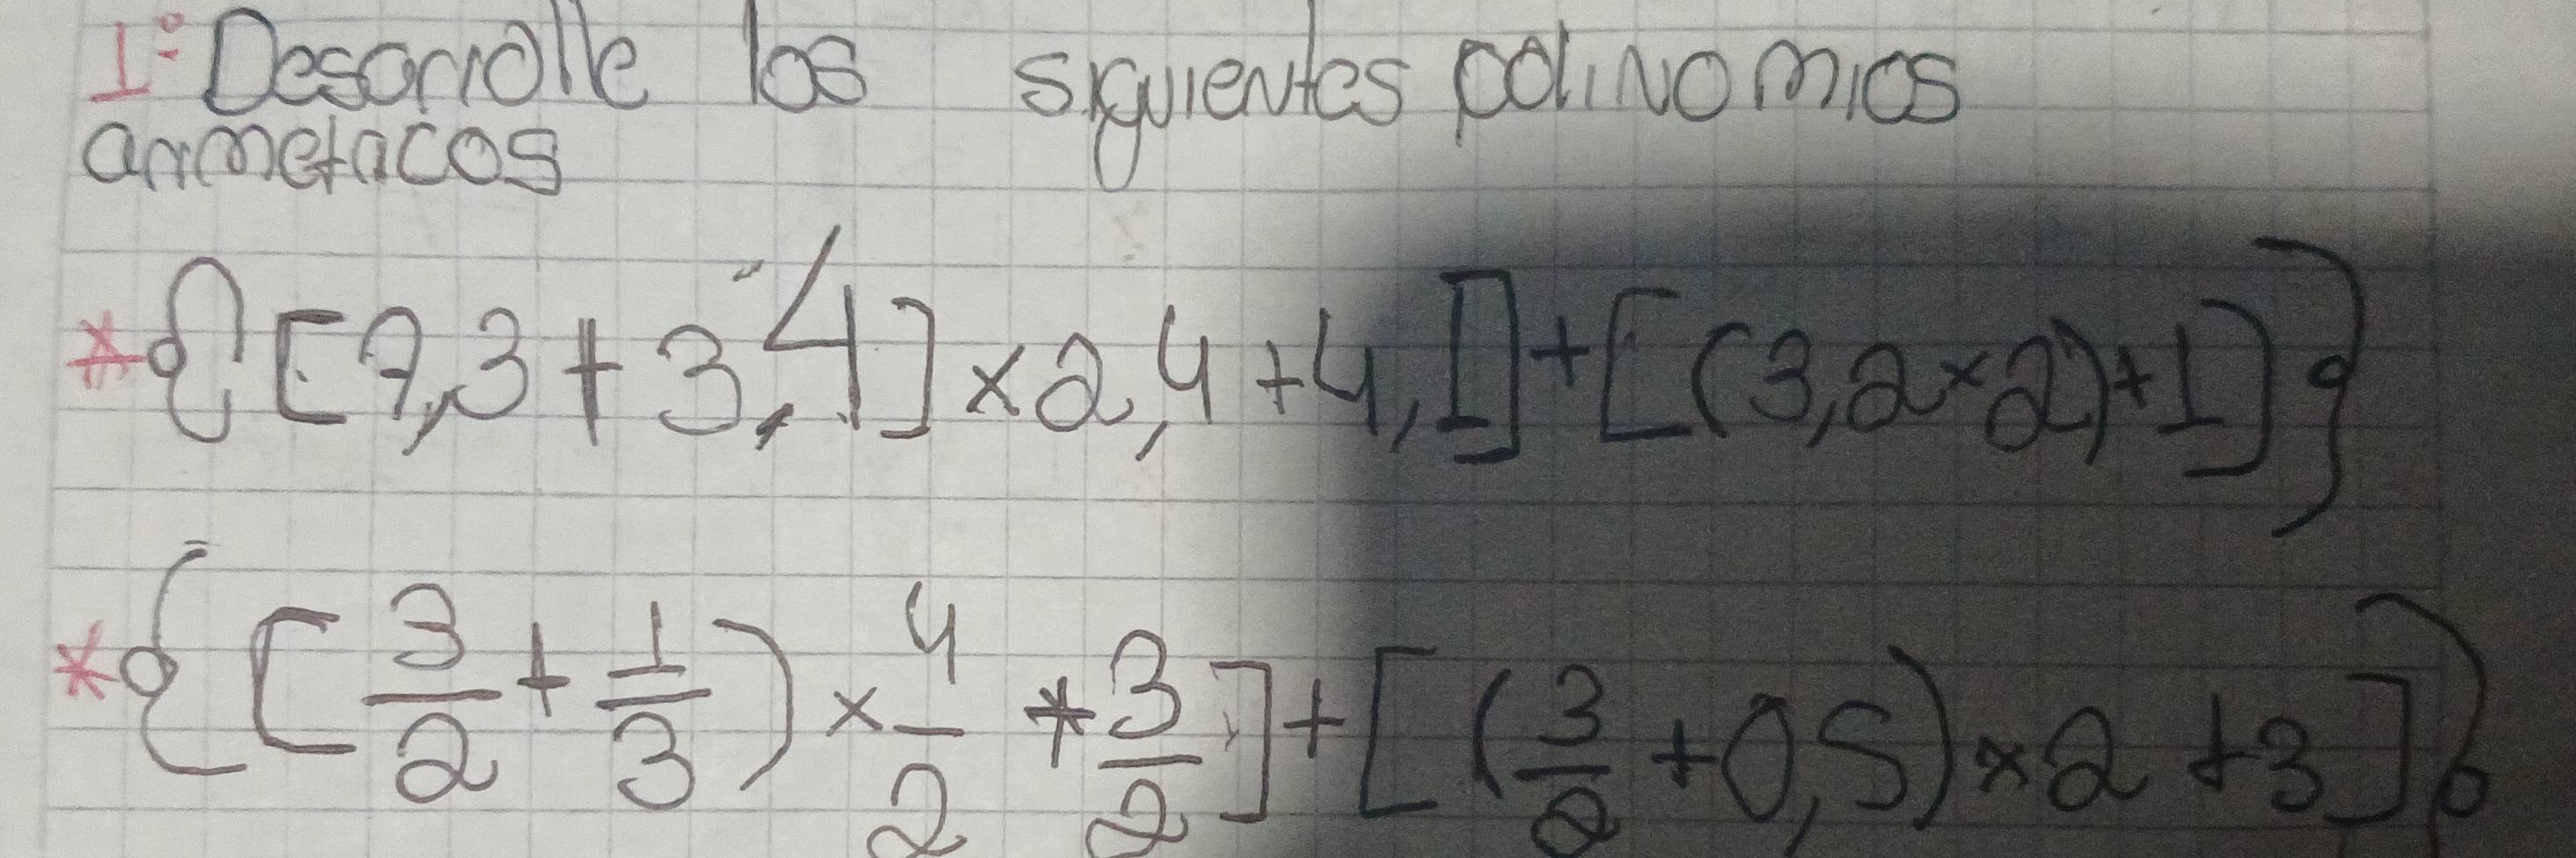 I: Desarrolle los siguientes polinomios
arimetacos
*{[7,3+3,4]×2,4+4,1]+[(3,2×2)+1]}
*{[3/2+1/3)×4/2+3/2]+[(3/2+0,5)×2+3]}